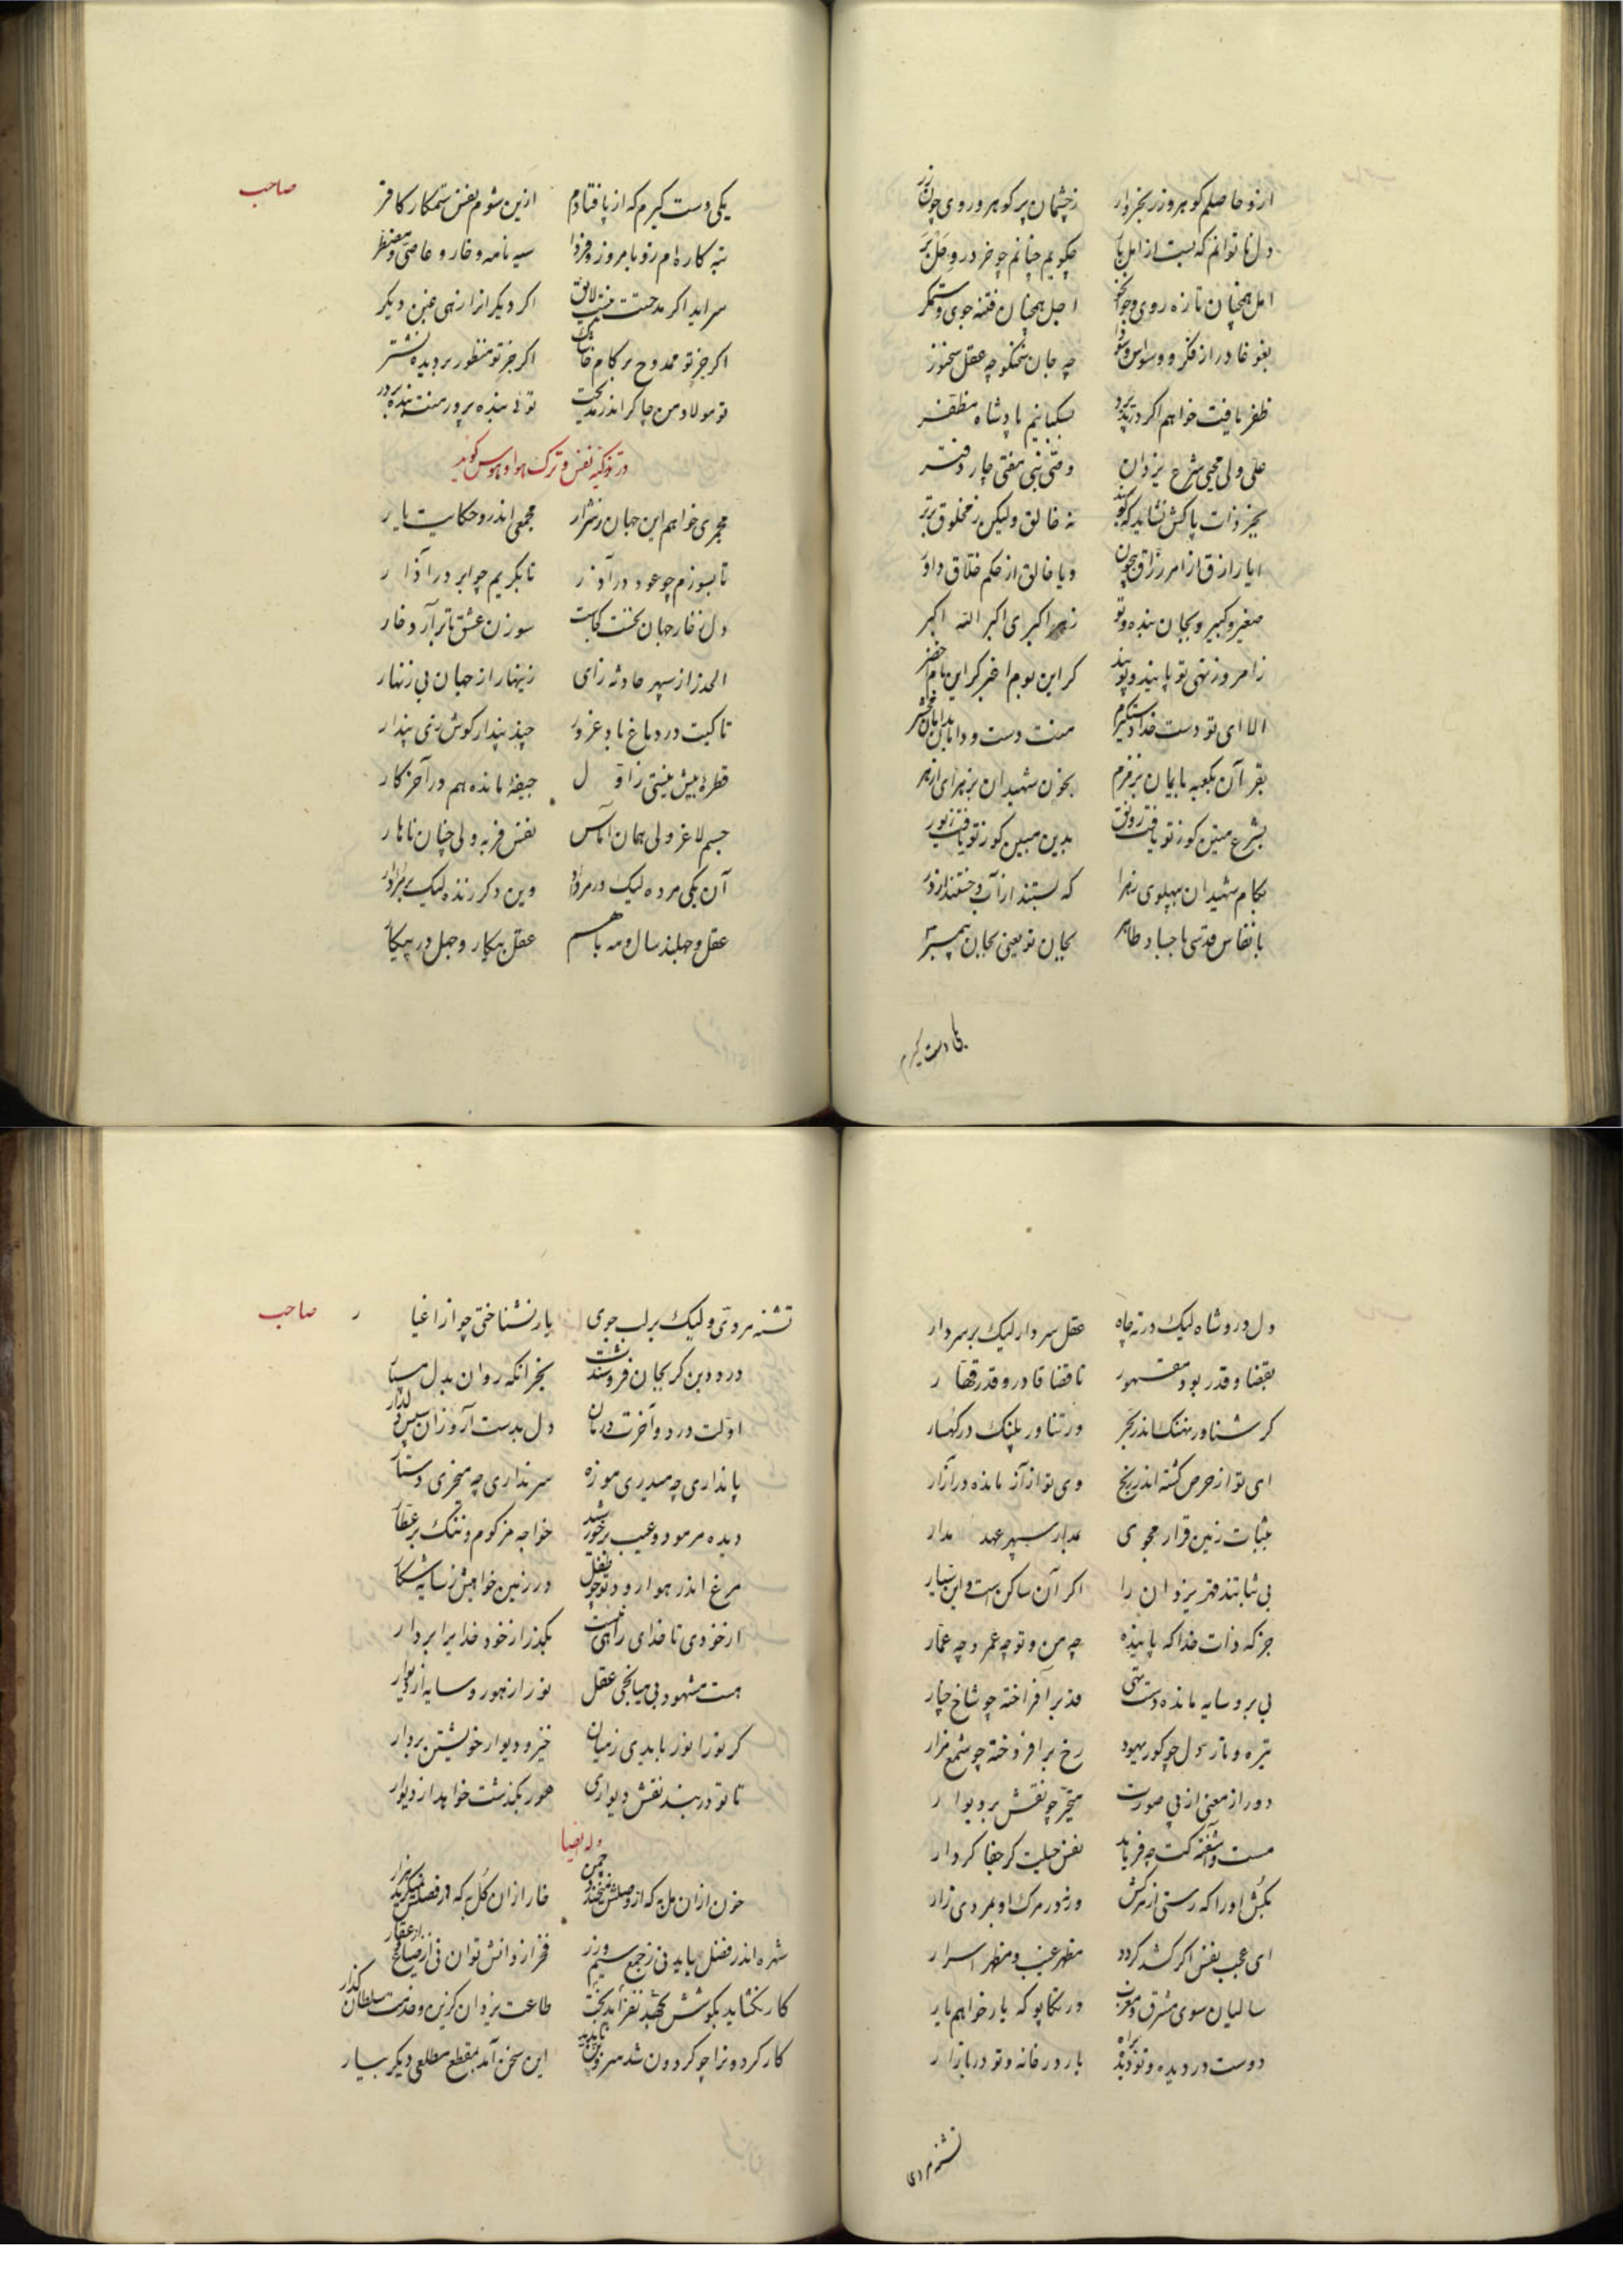 ازو حاصلم کوهر و زر بخروار زچشمان پر کوهر و روی چون زر
دل ناتوانم که بست از امل بار چکویم چنانم چو خر در وحل بر
امل همچنان تازه روی و اجل همچنان فتنه جوی و ستمکر
بغوغا در از فکر و وسواس و سودا چه جان سخنکو چه عقل سخنور
ظفر یافت خواهم اکر در پذیرد بسکبانیم پادشاه مظفر
علی ولی محیی شرع یزدان وصی نبی مفتی چار دفتر
بجز ذات پاکش نشاید که کویند نه خالق ولیکن ز مخلوق برتر
ایا رازق از امر رزاق بیچون ویا خالق از حکم خلاق داور
صغیر و کبیر و بجان بنده تو زهر اکبری اکبر الله اکبر
زامر و زنهی تو پایند و پویند کر این بوم اغبر کر این بام اخضر
الا ای تو دست خدا دستکیرم منت دست و دامان
بقرآن بکعبه بایمان بزمزم بخون شهیدان بزهرای ازهر
بشرع مبین کو ز تو یافت رونق بدین مبین کو ز تو یافت زیور
بکام شهیدان بپهلوی زهرا که بستند از آب و خستند از در
بانفاس قدسی باجساد طاهر بجان تو یعنی بجان پیمبر
یکی دست کیرم
صاحب
یکی دست کیرم که از پا فتادم ازین شوم نفس ستمکار کافر
تبه کاره‌ام رو بامروز و فردا سیه نامه و خار و عاصی و مضطر
سراید اکر مدحتت نیست لایق اکر دیکر انرا زهی غبن دیکر
اکر جز تو ممدوح بر کام خاشاک اکر جز تو منظور بر دیده نشتر
تو مولا و من چاکر اندر مدیحت توئی بنده پرور منت بنده پرور
در تزکیه نفس و ترک هوا و هوس کوید
مجمری خواهم این جهان ز شرار مجمعی اندرو حکایت یار
تا بسوزم چو عود در آذر تا بکریم چو ابر در آذار
دل فخار جهان بخست کجاست سوزن عشق تا برآرد خار
الحذر از سپهر حادثه زای زینهار از جهان بی زنهار
تا کیت در دماغ باد غرور چند پندار کوش نی پندار
قطرهٔ بیش نیستی ز اول جیفهٔ مانده هم در آخر کار
جسم لاغر ولی همان آماس نفس فربه ولی چنان ناهار
آن یکی مرده لیک در مردار وین دکر زنده لیک بر مردار
عقل و جهلند سال و مه با هم عقل بیکار و جهل در پیکار
دل درو شاه لیک در ته چاه عقل سردار لیک بر سر دار
بقضا و قدر بود مقهور تا قضا قادر و قدر قهار
کر شناور نهنک اندر بحر ور تناور پلنک در کهسار
ای تو از حرص کشته اندر رنج وی تو از آز مانده در آزار
بثبات زمین قرار مجوی بمدار سپهر عهد مدار
بی ثباتند قهر یزدان را اکر آن ساکن است و این سیار
جز که ذات خدا که پاینده چه من و تو چه عمر و چه عمار
بی بر و سایه مانده دست تهی قد برافراخته چو شاخ چنار
تیره و تار دل چو کور یهود رخ برافروخته چو شمع مزار
دور از معنی از پی صورت متحیر چو نقش بر دیوار
مست و آشفته کت چه فریبد نفس حیلت کر جفا کردار
بکش او را که رستی از مرکش ورنه در مرک او بمردی زار
ای عجب نفس اکر کشد کردد مظهر غیب و مظهر اسرار
سالیان سوی مشرق و مغرب در تکاپو که یار خواهم یار
دوست در دیده و تو دیده براه یار در خانه و تو در بازار
تشنه مردی
صاحب
تشنه مردی ولیک بر لب جوی یار نشناختی چو از اغیار
درد دین کر بجان فروشندت بخر آنکه روان بدل بسپار
اولت درد و آخرت درمان دل بدست آر و زان سپس دلدار
پا نداری چه میدری موزه سر نداری چه میخری دستار
دیده مرمود و عیب بر خورشید خواجه مزکوم و ننک بر عطار
مرغ اندر هوا رود تو چو طفل در زمین خواهیش ز سایه شکار
از خودی تا خدای راهی نیست بکذر از خود خدایرا بردار
هست مشهود بی میانجی عقل نور از هور و سایه از دیوار
کر ترا نور باید ی ز میان خیز و دیوار خویشتن بردار
تا تو در بند نقش دیواری هور بکذشت خواهد از دیوار
وله ایضا
خون از ان مل به که از وصلش نخندد چمن خار از ان کل به که در فصلش نکرید هزار
شهره اندر فضل باید نی ز جمع سیم و زر فخر از دانش توان نی از ضیاع و از عقار
کار نکشاید بکوشش بخت طاعت یزدان کزین و خدمت سلطان کذار
کار کردون را چو کردون شد سر و بن ناپدید این سخن آمد بمقطع مطلعی دیکر بیار